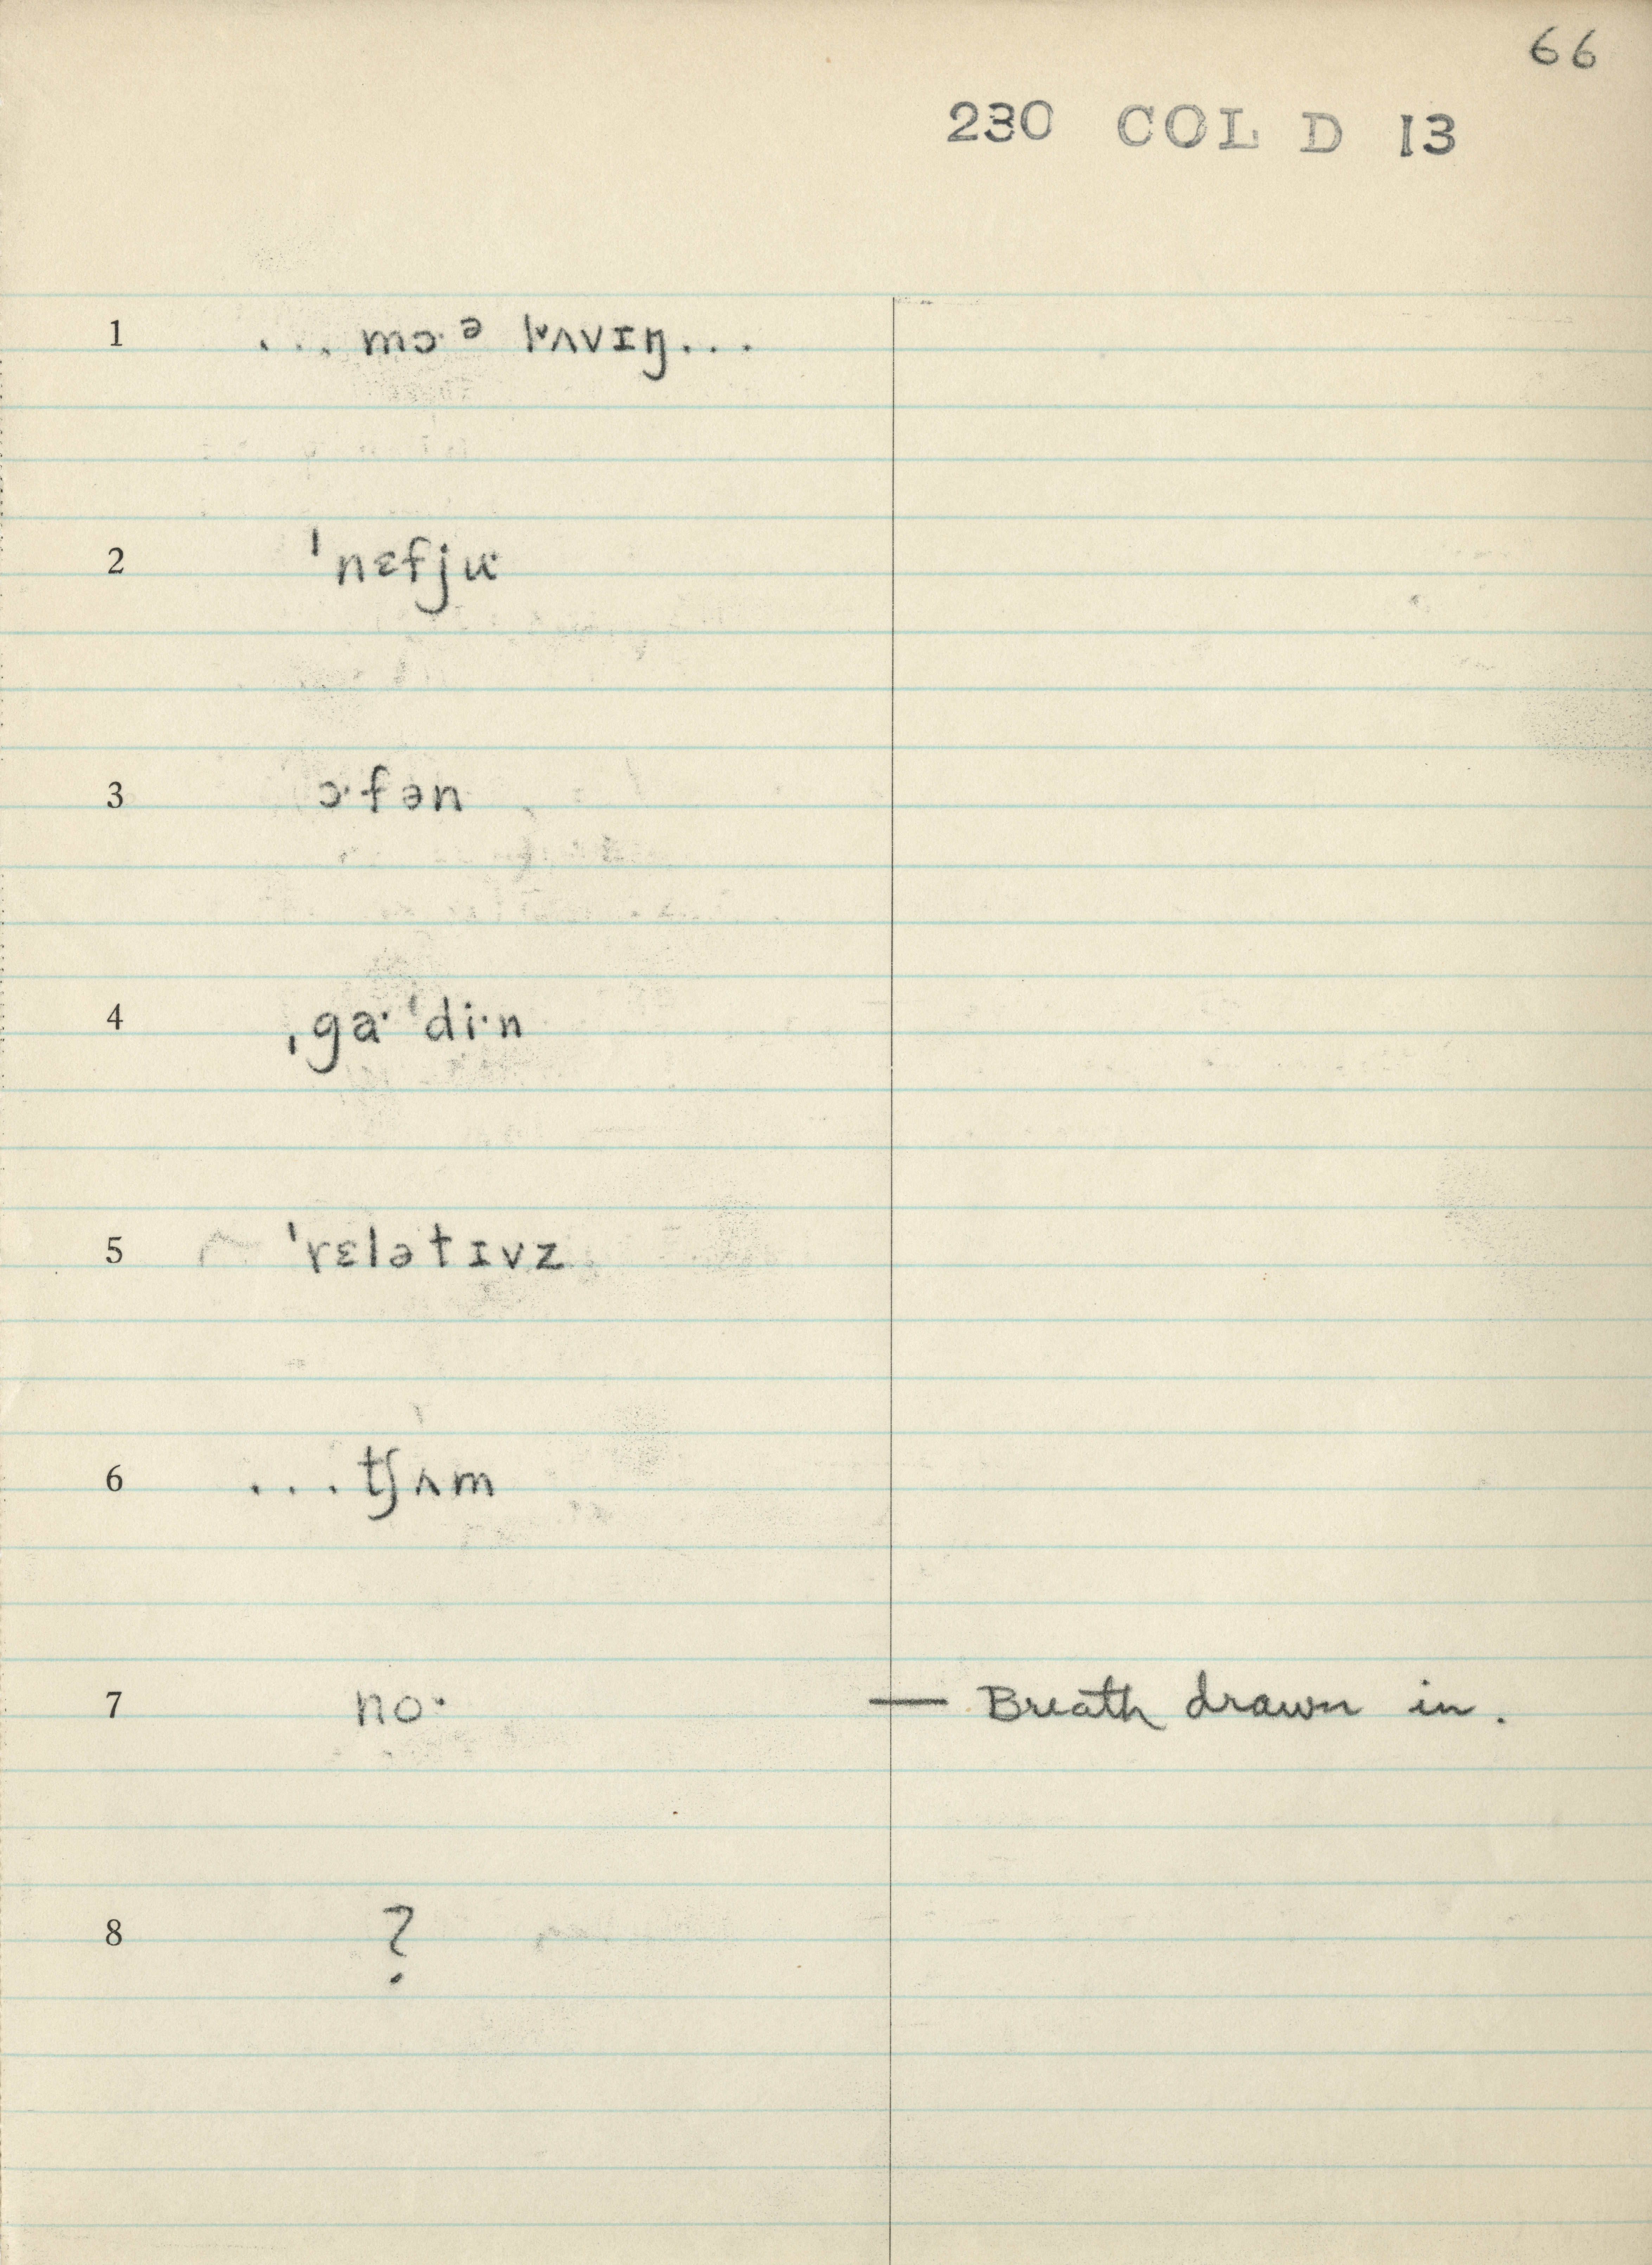 66
230 COL D 13
1 ... mɔ·ᵊ lʌvɪŋ...
2 ˈnɛfju·
3 ɔ·fən
4 ˌga·ˈdi·n
5 ˈrɛlətɪvz
6 ... tʃʌm
7 no· — Breath drawn in.
8 ?